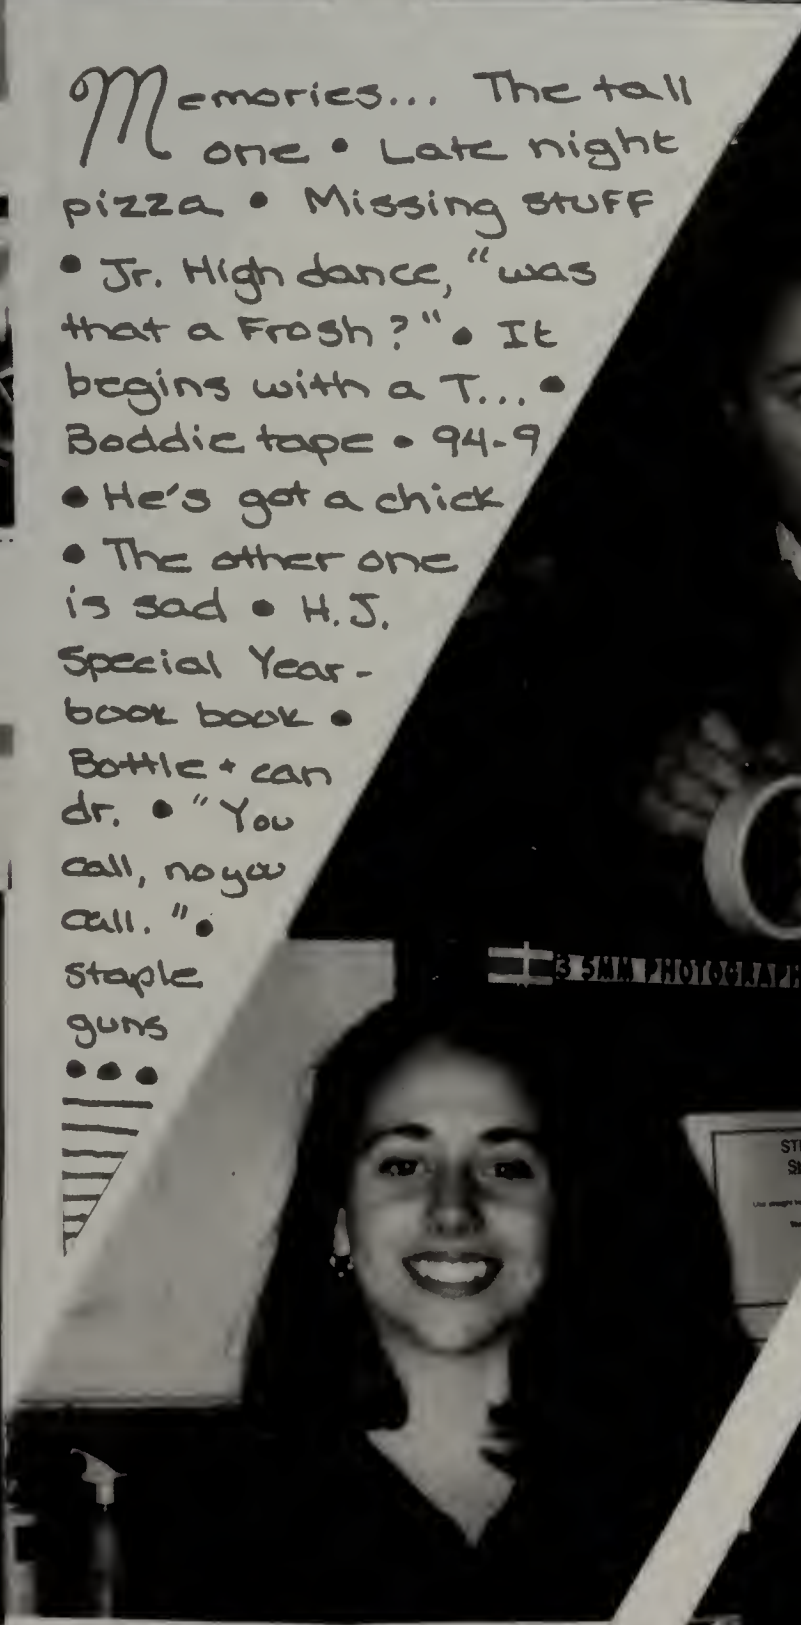 Memories... The tall
one • Late night
pizza • Missing stuff
• Jr. High dance, "was
that a Frosh?" • It
begins with a T... •
Boddie tape • 94-9
• He's got a chick
• The other one
is sad • H.J.
Special Year-
book book •
Bottle + can
dr. • "You
call, no you
call." •
staple
guns
•••
35MM PHOTOGRAPH